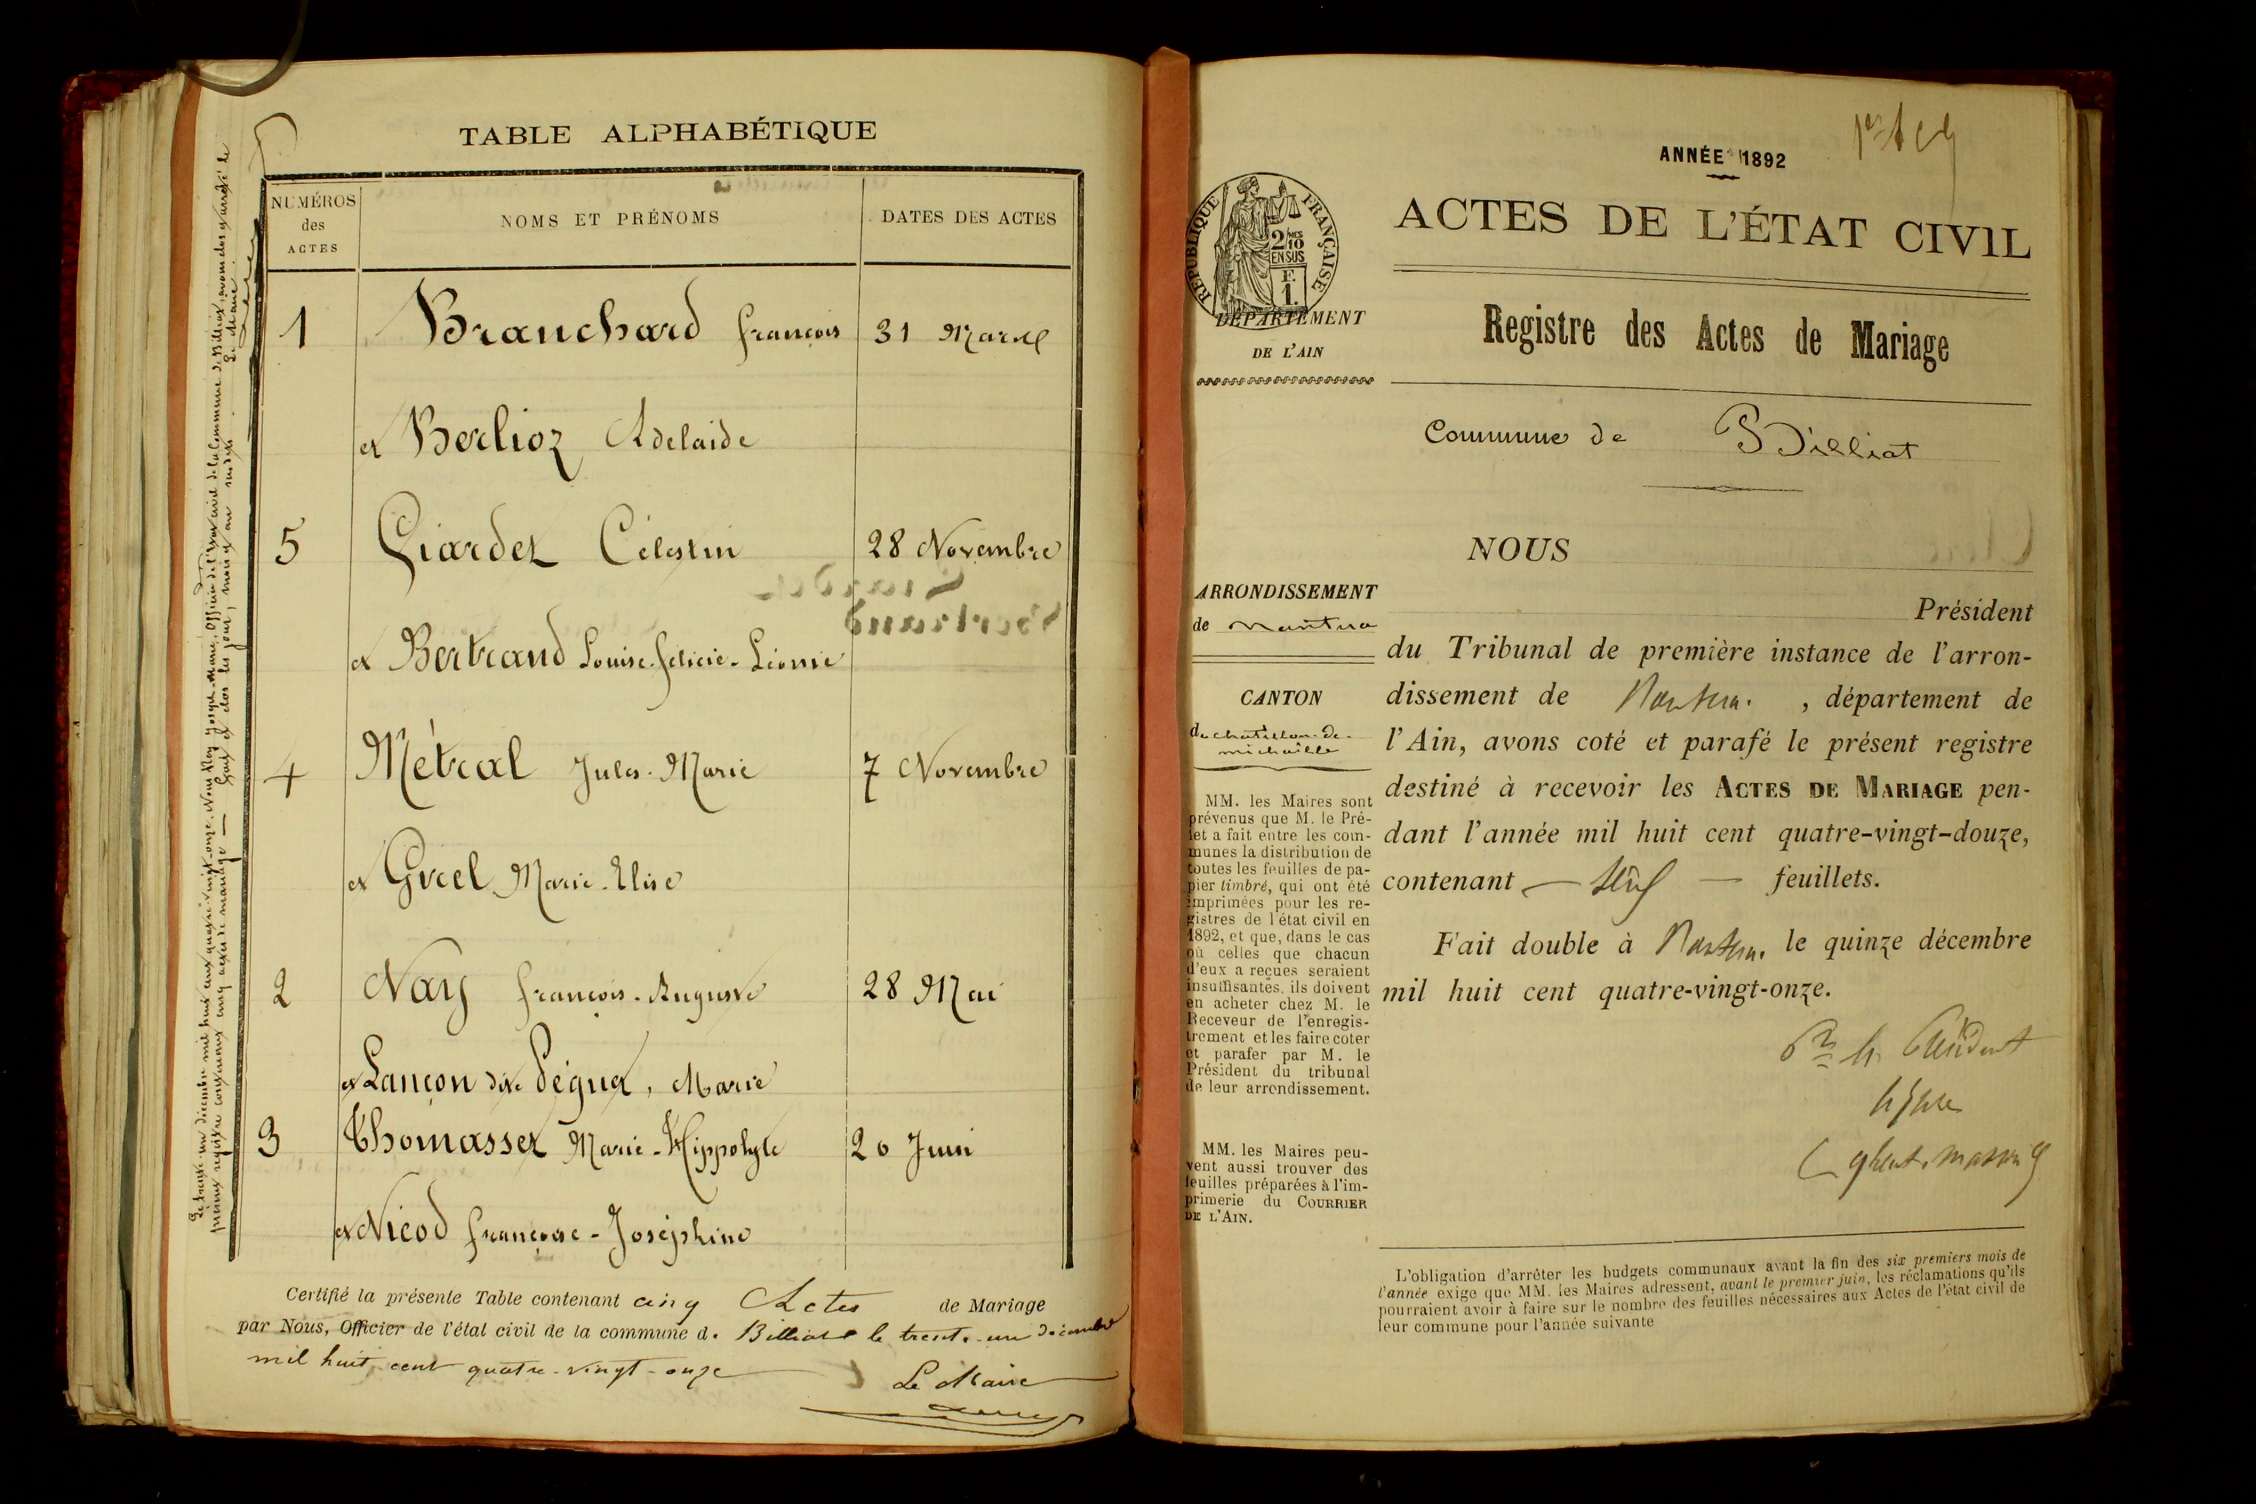 TABLE ALPHABÉTIQUE
NUMÉROS des ACTES
NOMS ET PRÉNOMS
DATES DES ACTES
1 Branchard françois 31 Mars
et Berlioz Adelaide
5 Giardet Célestin 28 Novembre
et Bertrand Louise-felicie-Léonie
4 Métral Jules-Marie 7 Novembre
et Grcel Marie-Elise
2 Nay françois-Auguste 28 Mai
et Lançon dite Péguet, Marie
3 Thomasset Marie-Hippolyte 20 Juin
et Nicod françoise-Joséphine
Certifié la présente Table contenant cinq Actes de Mariage
par Nous, Officier de l'état civil de la commune d. Billiat le trente-un décembre
mil huit cent quatre-vingt-onze
Le Maire
Le trente-un décembre mil huit cent quatre-vingt-onze, Nous Nay Joseph-Marie, officier de l'état civil de la Commune de Billiat, avons clos et arrêté le
présent registre contenant cinq actes de mariage — Fait et clos les jour, mois et an susdits.
Le Maire
ANNÉE 1892
ACTES DE L'ÉTAT CIVIL
RÉPUBLIQUE FRANÇAISE
2/10 MES
EN SUS
F.
1.
DÉPARTEMENT
DE L'AIN
Registre des Actes de Mariage
Commune de Billiat
ARRONDISSEMENT
de Nantua
CANTON
de chatillon-de-
michaille
MM. les Maires sont
prévenus que M. le Pré-
fet a fait entre les com-
munes la distribution de
toutes les feuilles de pa-
pier timbré, qui ont été
imprimées pour les re-
gistres de l'état civil en
1892, et que, dans le cas
où celles que chacun
d'eux a reçues seraient
insuffisantes, ils doivent
en acheter chez M. le
Receveur de l'enregis-
trement et les faire coter
et parafer par M. le
Président du tribunal
de leur arrondissement.
MM. les Maires peu-
vent aussi trouver des
feuilles préparées à l'im-
primerie du COURRIER
DE L'AIN.
NOUS
Président
du Tribunal de première instance de l'arron-
dissement de Nantua. , département de
l'Ain, avons coté et parafé le présent registre
destiné à recevoir les ACTES DE MARIAGE pen-
dant l'année mil huit cent quatre-vingt-douze,
contenant — — feuillets.
Fait double à Nantua. le quinze décembre
mil huit cent quatre-vingt-onze.
Pr le Président
L'obligation d'arrêter les budgets communaux avant la fin des six premiers mois de
l'année exige que MM. les Maires adressent, avant le premier juin, les réclamations qu'ils
pourraient avoir à faire sur le nombre des feuilles nécessaires aux Actes de l'état civil de
leur commune pour l'année suivante